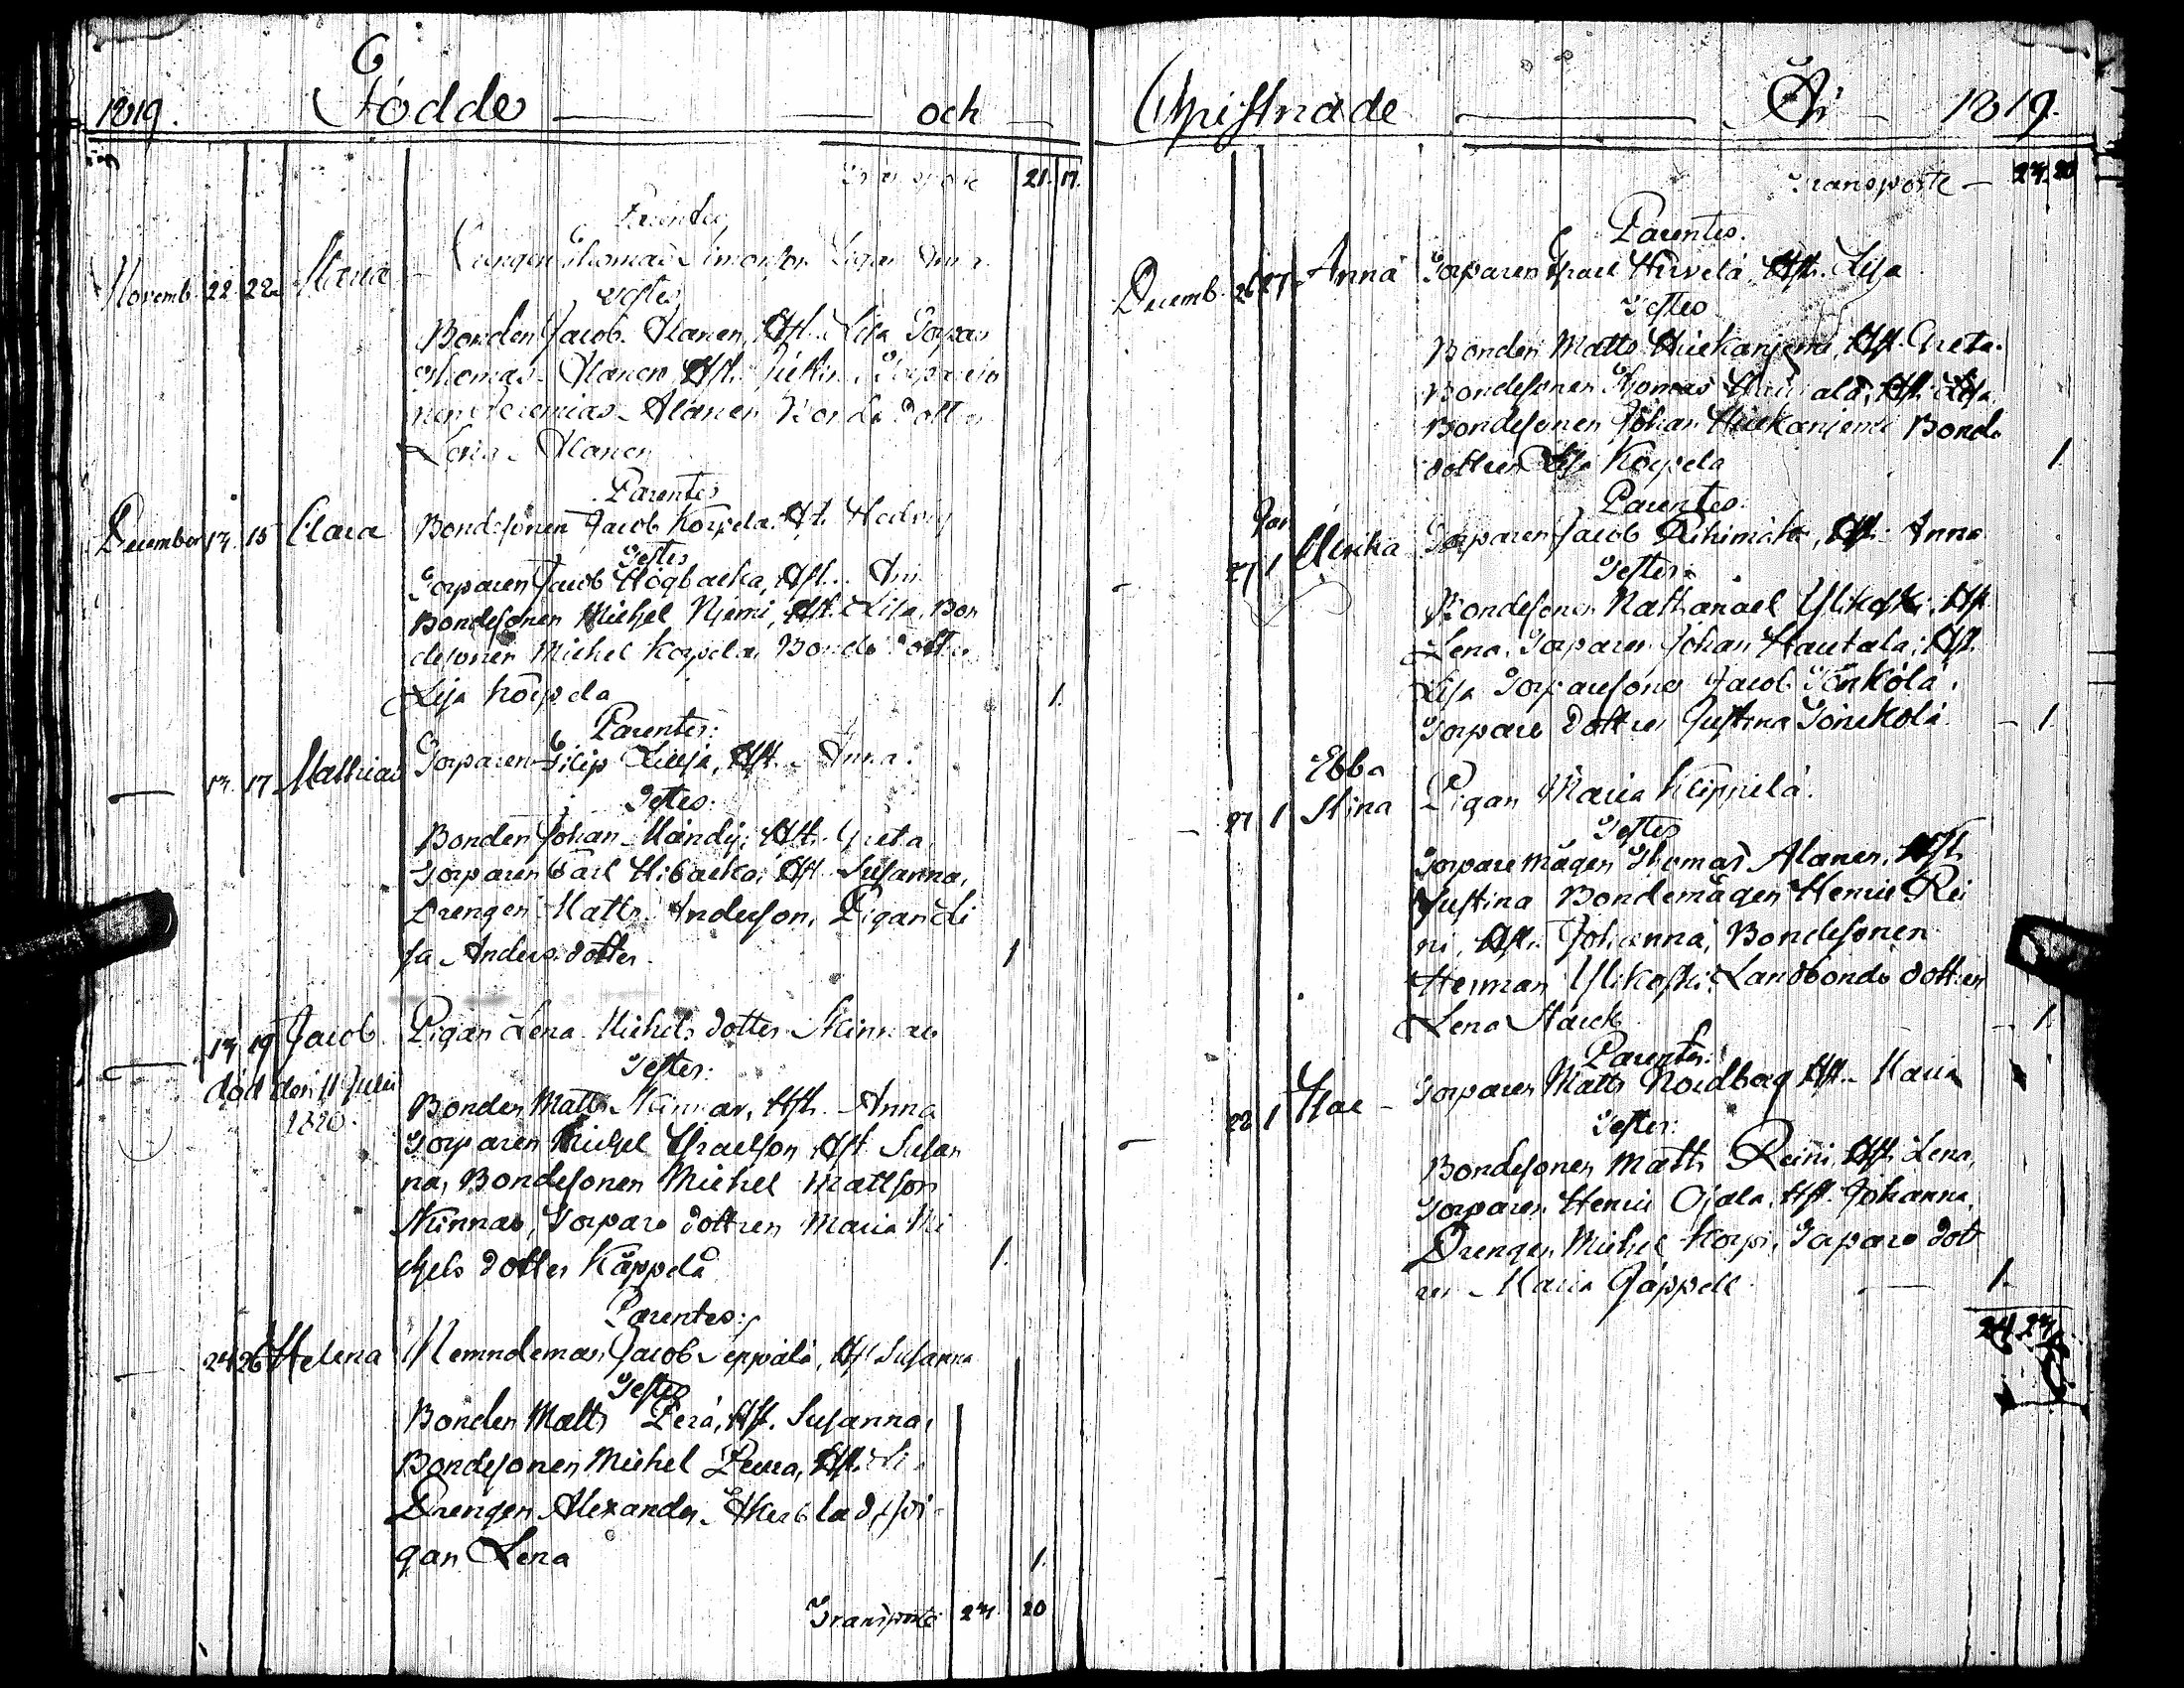 1819. Födde och
Transporte 21. 17.
Parentes
Novemb. 22 22 Maria Drengen Thomas Simonson Pigan Anna
Testes
Bonden Jacob Alanen, Hst. Lisa Torpar
Thomas Alanen Hst.
nen Jeremias Alanen Bonde dottren
Lena Alanen
Parentes
December 14 15 Clara Bondesonen Jacob Korpela, Hst. Hedvig
Testes
Torparen Jacob Högbacka, Hst. Ann
Bondesonen Michel Niemi, Hst. Lisa, Bon
desonen Michel Korpela, Bonde dottren
Lisa Korpela 1.
Parentes:
14 17 Mathias Torparen Filip Lillja, Hst. Anna.
Testes.
Bonden Johan Mandy, Hst. Greta
Torparen Carl Hibacka, Hst. Susanna,
Drengen Matts Anderson, Pigan Li
sa Anders dotter. 1
14 19 Jacob Pigan Lena Michels dotter Skinnar
Testes:
död den 11 Julii
1820.
Bonden Matts Skinnar, Hst. Anna
Torparen Michel Israelson Hst Susan
na, Bondesonen Michel Mattson
Skinnar, Torpare dottren Maria Mi
chels dotter Käppelä 1.
Parentes:
24 26 Helena Nemndeman Jacob Seppälä, Hst Susanna
Testes
Bonden Matts Perä, Hst. Susanna,
Bondesonen Michel Peura, Hst. Li
Drengen Alexander Åkerblad, pi
gan Lena 1.
Transporte 24 20
Christnade År 1819.
Transporte 24. 20
Parentes.
Decemb. 26 27 Anna Torparen Isac Hirvelä, Hst. Lisa
Testes
Bonden Matts Hiekaniemi, Hst. Greta.
Bondesonen Thomas Hst. Lisa
Bondesonen Johan Hiekaniemi Bonde
dottren Lisa Korpela 1.
Parentes.
Jan
27 1 Ulrika Torparen Jacob Rihimäki, Hst. Anna
Testes
Bondesonen Nathanael Ylikoski, Hst
Lena, Torparen Johan Hautala, Hst.
Lisa Torparesonen Jacob Tönkölä,
Torpare dottren Justina Tönkölä 1.
Ebba
27 1 Stina Pigan Maria Klipnilä.
Testes
Torparemågen Thomas Alanen, Hst.
Justina Bondemågen Henric Rei
ni, Hst. Johanna, Bondesonen
Herman Ylikoski, Landbonde dottren
Lena Starck 1.
Parentes:
28 1 Isac Torparen Matts Nordberg Hst. Maria
Testes:
Bondesonen Matts Reini, Hst. Lena,
Torparen Henric Ojala, Hst. Johanna,
Drengen Michel Korpi, Torpare dott
ren Maria Jäppell 1.
24 24